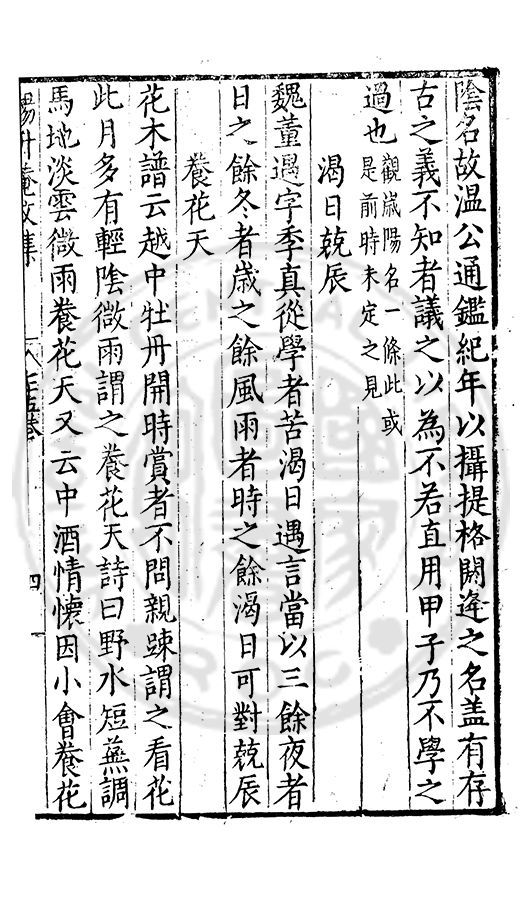 陰名故温公通鑑紀年以攝提格閼逢之名盖有存
古之義不知者議之以為不若直用甲子乃不學之
過也觀歲陽名一條此或
是前時未定之見
渴日兢辰
魏董遇字季真從學者苦渴日遇言當以三餘夜者
日之餘冬者歲之餘風雨者時之餘渴日可對兢辰
養花天
花木譜云越中牡丹開時賞者不問親踈謂之看花
此月多有輕陰微雨謂之養花天詩曰野水短蕪調
馬地淡雲微雨養花天又云中酒情懷因小會養花
楊升庵文集
四